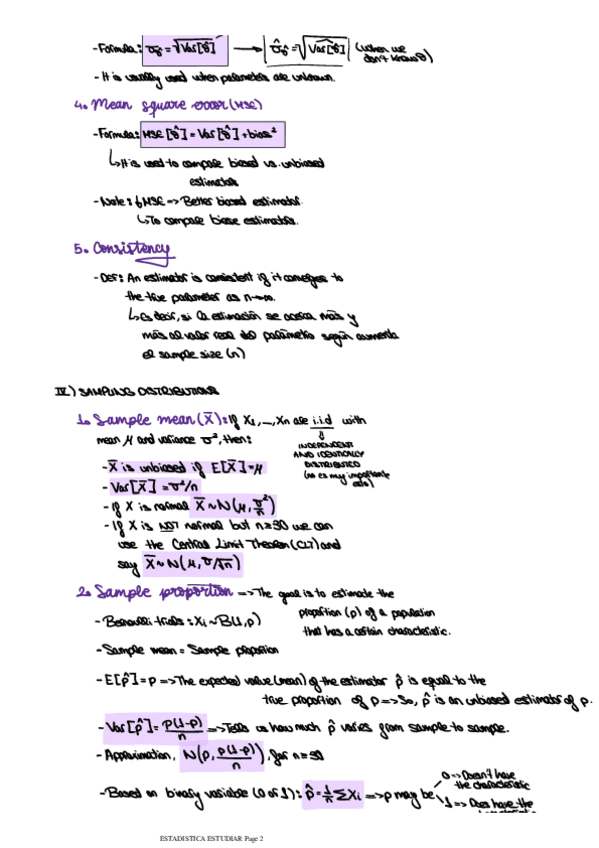 - Formula: σ_θ̂ = √Var[θ̂] → σ̂_θ̂ = √Var̂[θ̂] (when we don't know θ)
- It is usually used when parameters are unknown.
4. Mean square error (MSE)
- Formula: MSE[θ̂] = Var[θ̂] + bias²
↳ It is used to compare biased vs. unbiased
estimators
- Note: ↓MSE => Better biased estimator.
↳ To compare biase estimators.
5. Consistency
- Def: An estimator is consistent if it converges to
the true parameter as n→∞.
↳ Es decir, si la estimación se acerca más y
más al valor real del parámetro según aumenta
el sample size (n)
IV) SAMPLING DISTRIBUTIONS
1. Sample mean (X̄): If X₁, ..., Xn are i.i.d with
mean μ and variance σ², then:
INDEPENDENT
AND IDENTICALLY
DISTRIBUTED
(no es muy importante
esto)
- X̄ is unbiased if E[X̄] = μ
- Var[X̄] = σ²/n
- If X is normal X̄ ~ N(μ, σ²/n)
- If X is NOT normal but n≥30 we can
use the Central Limit Theorem (CLT) and
say X̄ ~ N(μ, σ/√n)
2. Sample proportion => The goal is to estimate the
proportion (p) of a population
that has a certain characteristic.
- Bernoulli trials: Xi ~ B(1, p)
- Sample mean = Sample proportion
- E[p̂] = p => The expected value (mean) of the estimator p̂ is equal to the
true proportion of p => So, p̂ is an unbiased estimator of p.
- Var[p̂] = p(1-p)/n => Tells us how much p̂ varies from sample to sample.
- Approximation, N(p, p(1-p)/n), for n≥30
- Based on binary variable (0 or 1): p̂ = 1/n ΣXi => p may be
0 => Doesn't have
the characteristic
1 => Does have the
ESTADISTICA ESTUDIAR Page 2